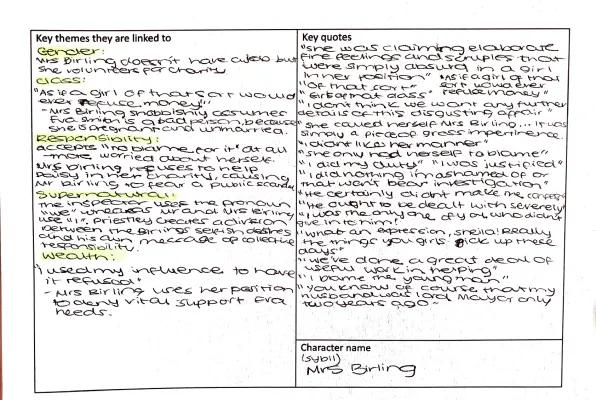 Key themes they are linked to
Gender:
Mrs Birling doesn't have a job but
she volunteers for charity
Class:
"As if a girl of that sort would
ever refuse money"
- Mrs Birling snobbishly assumes
Eva Smith is a bad person, because
she is pregnant and unmarried.
Responsibility:
Accepts "no blame for it" at all
- more worried about herself.
Mrs birling refuses to help
Daisy in her charity, causing
Mr birling to fear a public scandal
Supernatural:
The Inspector uses the pronoun
"we" whereas Mr and Mrs Birling
use 'I', Priestley creates a division
between the Birlings selfish desires
and his own message of collective
responsibility.
Wealth:
"I used my influence to have
it refused"
- Mrs Birling uses her position
to deny vital support Eva
needs.
Key quotes
"she was claiming elaborate
fine feelings and scruples that
were simply absurd in a girl
in her position"
"As if a girl of that
sort would ever
refuse money"
"of that sort"
"Girls of that class"
"I don't think we want any further
details of this disgusting affair"
"she called herself Mrs Birling... it was
simply a piece of gross impertinence
"I didn't like her manner"
"she only had herself to blame"
"I did my duty" "I was justified"
"I did nothing I'm ashamed of or
that won't bear investigation"
"He certainly didn't make me confess
"He ought to be dealt with severely"
"I was the only one of you who didn't
give in to him!
"What an expression, sheila! Really
the things you girls pick up these
days"
"we've done a great deal of
useful work in helping"
"I blame the young man"
"You know of course that my
husband was lord Mayor only
two years ago-
Character name
(sybil)
Mrs Birling